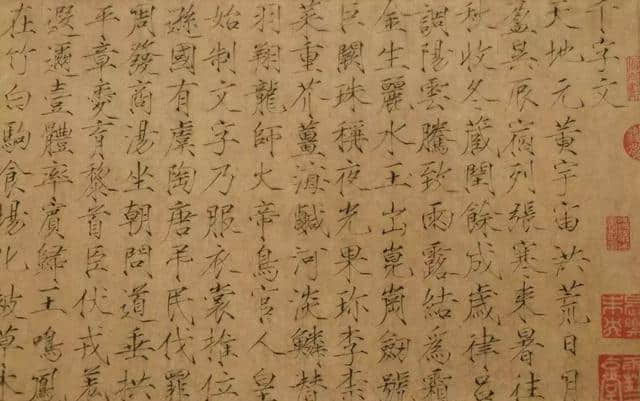 千字文
天地元黃宇宙洪荒日月
盈昃辰宿列張寒來暑往
秋收冬藏閏餘成歲律呂
調陽雲騰致雨露結爲霜
金生麗水玉出崑崗劒號
巨闕珠稱夜光果珍李柰
菜重芥薑海鹹河淡鱗潛
羽翔龍師火帝鳥官人皇
始制文字乃服衣裳推位
遜國有虞陶唐弔民伐罪
周發商湯坐朝問道垂拱
平章愛育黎首臣伏戎羌
遐邇壹體率賓歸王鳴鳳
在竹白駒食場化被草木